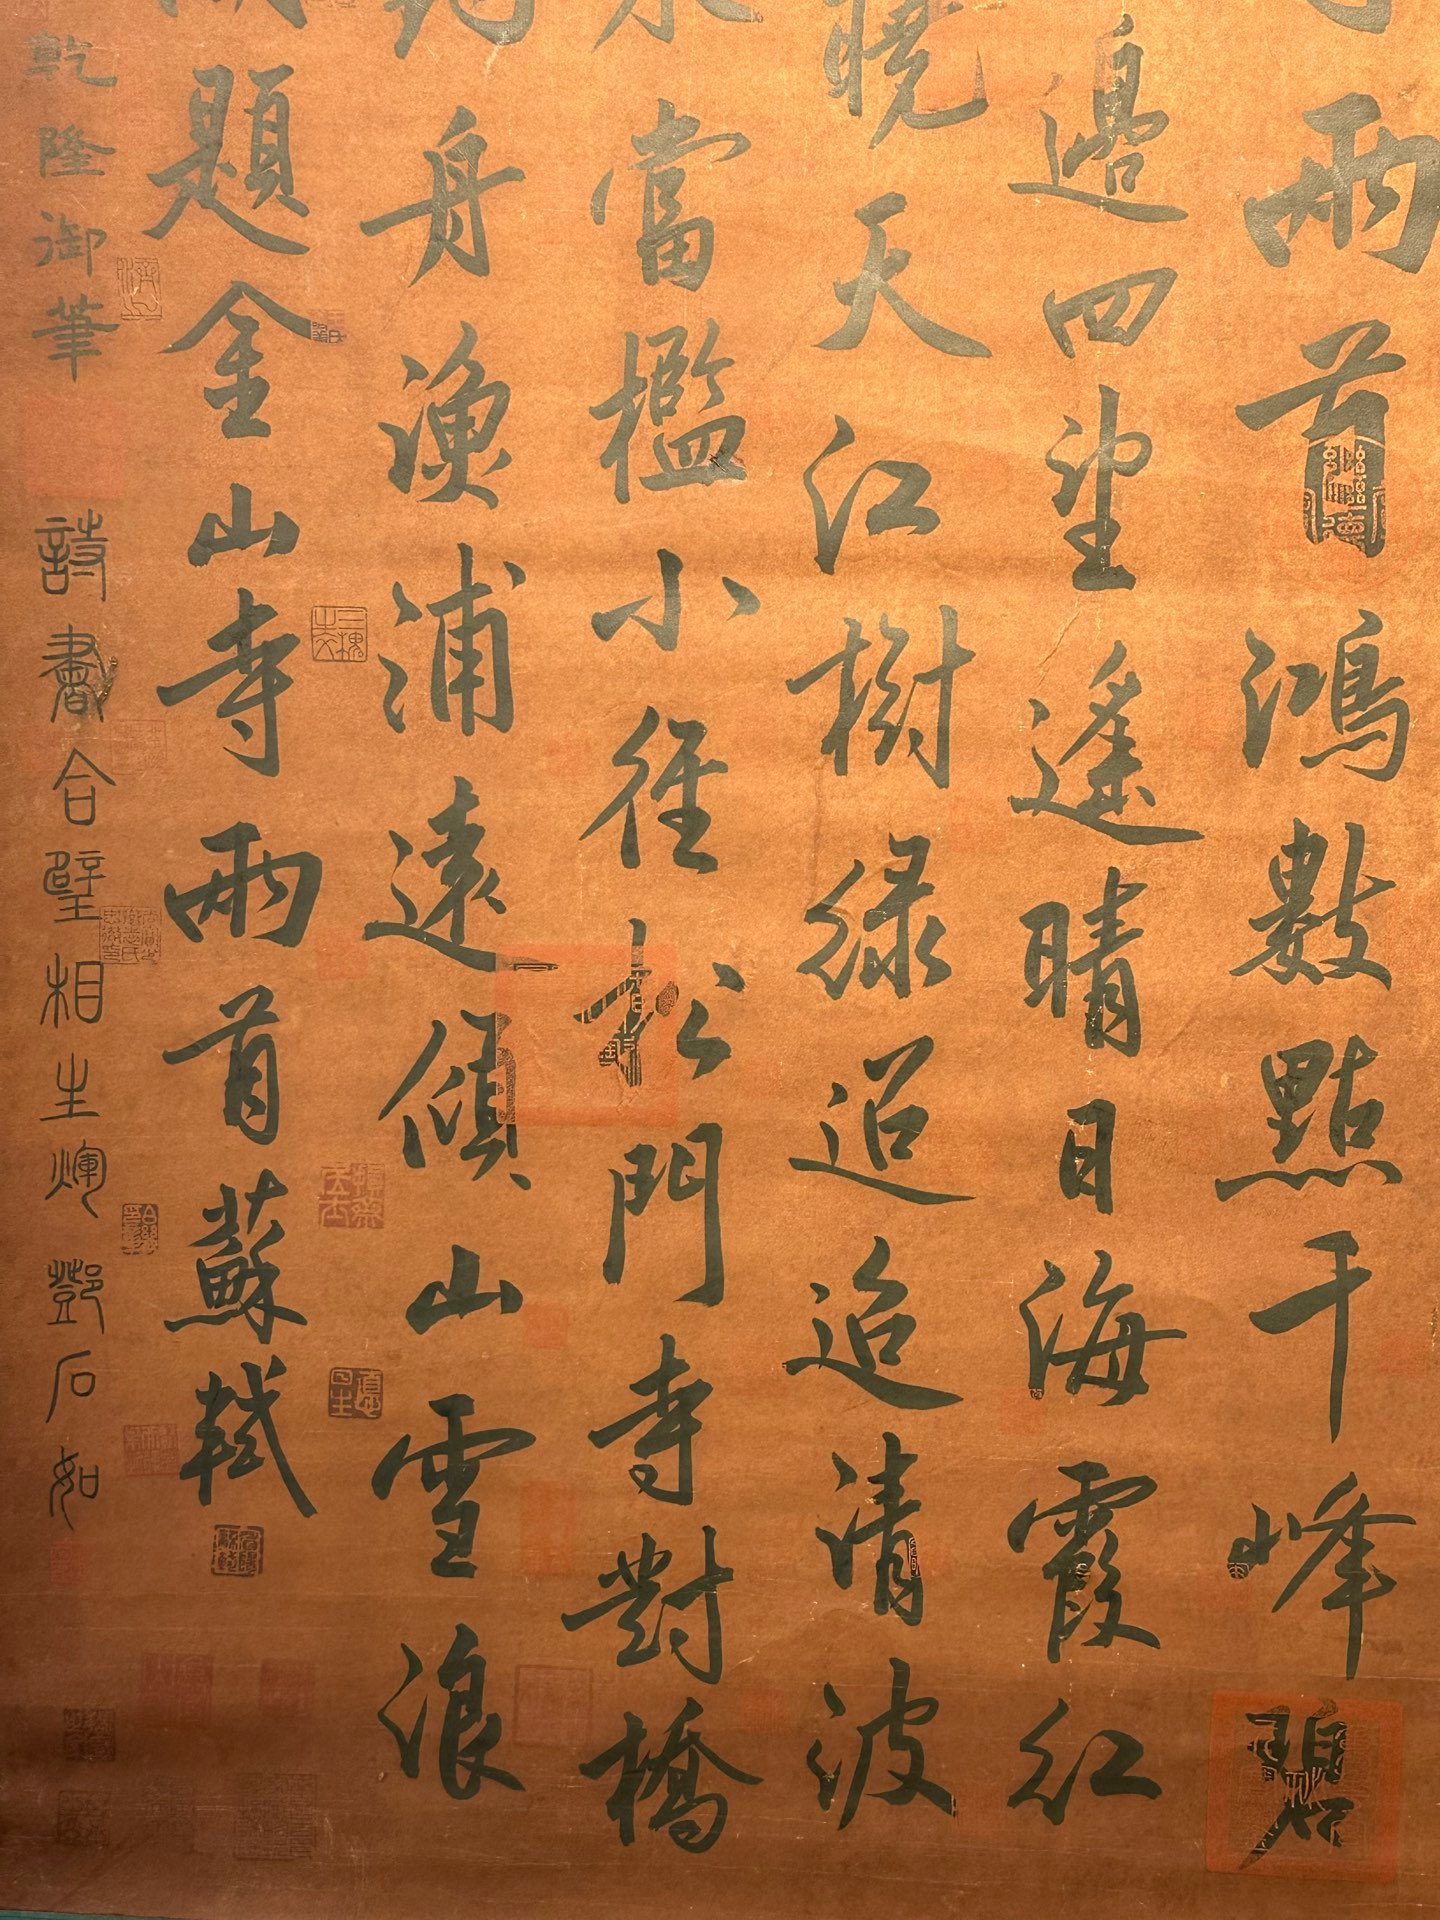 雨首鴻數點千峰碧
邊四望遙晴日海霞紅
曉天江樹綠迢迢清波
當檻小徑松門寺對橋
舟漁浦遠傾山雪浪
題金山寺兩首蘇軾
乾隆御筆
詩書合璧相生輝鄧石如